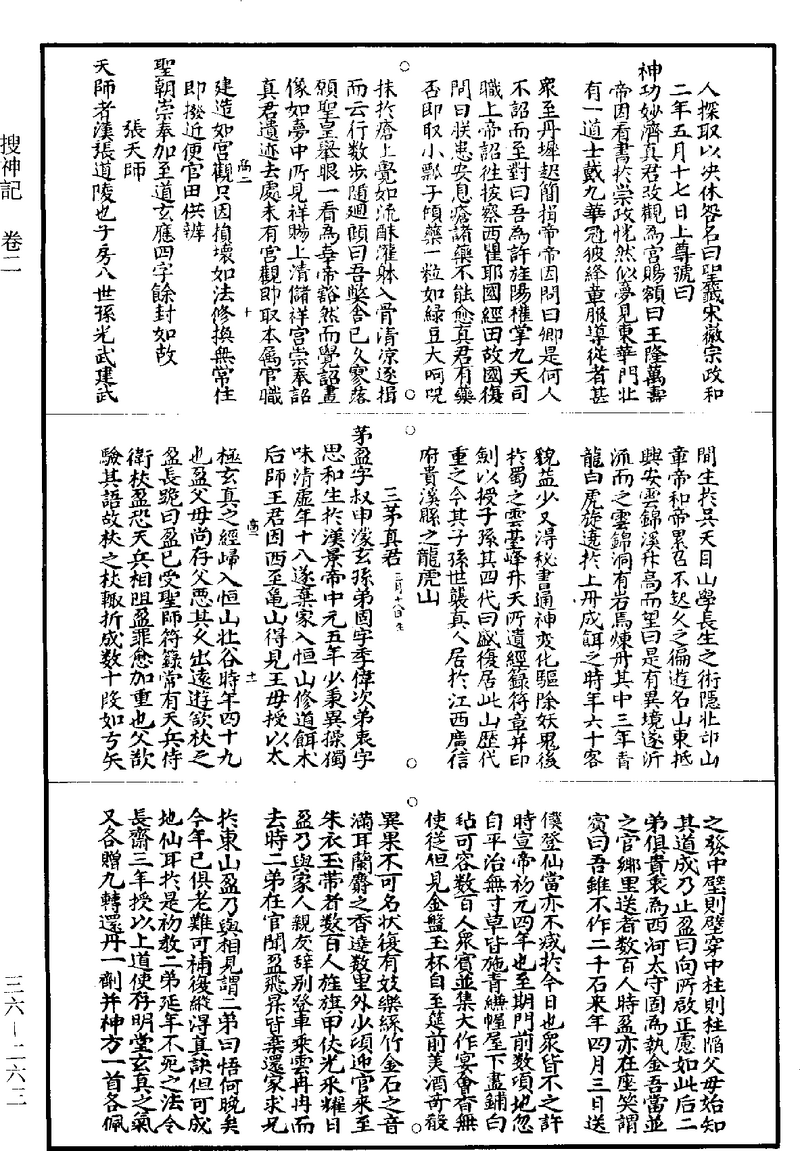 人探取以決休咎名曰聖籤宋徽宗政和
二年五月十七日上尊號曰
神功妙濟真君改觀為宮賜額曰玉隆萬壽
帝因看書於崇政恍然似夢見東華門壯
有一道士戴九華冠披絳章服導從者甚
眾至丹墀起簡揖帝帝因問曰卿是何人
不詔而至對曰吾為許旌陽權掌九天司
職上帝詔往按察西瞿耶國經由故國復
問曰朕患安息瘡諸藥不能愈真君有藥
否即取小瓢子傾藥一粒如綠豆大呵呪
抹於瘡上覺如流酥灌躰入骨清涼遂揖
而云行數步隨廻顧曰吾弊舍已久寥落
願聖皇舉眼一看為幸帝豁然而覺詔畫
像如夢中所見祥賜上清儲祥宮崇奉詔
真君遺迹去處未有宮觀即取本屬官職
高二
十
建造如宮觀只因損壞如法修換無常住
即撥近便官田供辦
聖朝崇奉加至道玄應四字餘封如故
張天師
天師者漢張道陵也子房八世孫光武建武
搜神記 卷二
間生於吳天目山學長生之術隱壯邙山
章帝和帝累召不起久之徧遊名山東抵
興安雲錦溪升高而望曰是有異境遂沂
流而之雲錦洞有岩焉煉丹其中三年青
龍白虎旋遶於上丹成餌之時年六十客
貌益少又得秘書通神變化驅除妖鬼後
於蜀之雲臺峰升天所遺經籙符章并印
劍以授子孫其四代曰盛復居此山歷代
重之今其子孫世襲真人居於江西廣信
府貴溪縣之龍虎山
三茅真君
茅盈字叔申濛玄孫弟固字季偉次弟衷字
思和生於漢景帝中元五年少秉異操獨
味清虛年十八遂棄家入恒山修道餌木
后師王君因西至龜山得見王母授以太
高二
十一
極玄真之經歸入恒山壯谷時年四十九
也盈父母尚存父惡其久出遠遊欲杖之
盈長跪曰盈已受聖師符籙常有天兵侍
衛杖盈恐天兵相阻盈罪愈加重也父欲
驗其語故杖之杖輙折成數十段如弓矢
之發中壁則壁穿中柱則柱陷父母始知
其道成乃止盈曰向所啟正慮如此后二
弟俱貴衷為西河太守固為執金吾當並
之官鄉里送者數百人時盈亦在座笑謂
賓曰吾雖不作二千石來年四月三日送
僕登仙當亦不減於今日也眾皆不之許
時宣帝初元四年也至期門前數項地忽
自平治無寸草皆施青縑幄屋下盡鋪白
毡可容數百人眾賓並集大作宴會杳無
使從但見金盤玉杯自至筵前美酒奇殽
異果不可名狀復有妓樂絲竹金石之音
滿耳蘭麝之香達數里外少頃迎官來至
朱衣玉帶者數百人旌旗甲仗光釆耀日
盈乃與家人親友辭別登車乘雲冉冉而
去時二弟在官聞盈飛昇皆棄還家求兄
於東山盈乃與相見謂二弟曰悟何晚矣
今年已俱老難可補復縱得真訣但可成
地仙耳於是初教二弟延年不死之法令
長齋三年授以上道使存明堂玄真之氣
又各贈九轉還丹一劑并神方一首各佩
三六—二六二